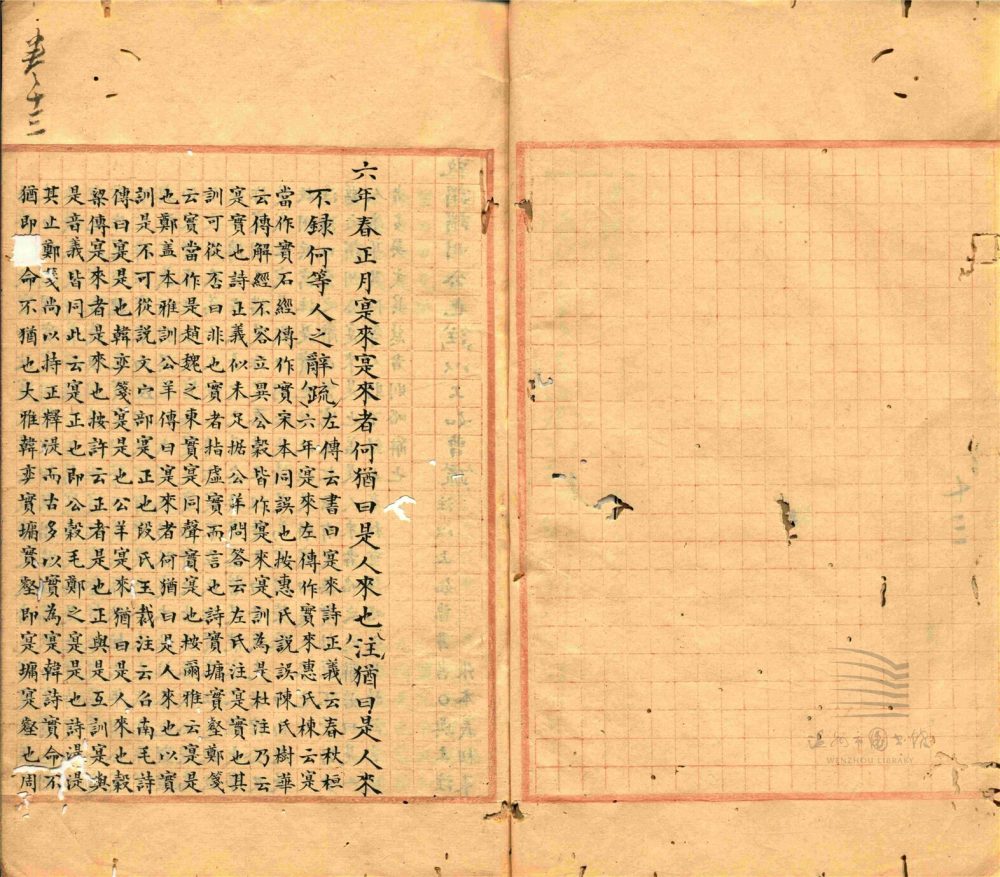 温州市图书馆
WENZHOU LIBRARY
六年春正月寔來寔來者何猶曰是人來也注猶曰是人來
不録何等人之辭疏
左傳云書曰寔來詩正義云春秋桓
六年寔來左傳作實來惠氏棟云寔
當作實石經傳作實宋本同誤也按惠氏説誤陳氏樹華
云傳解經不容立異公穀皆作寔來寔訓為是杜注乃云
寔實也詩正義似未足据公羊問答云左氏注寔實也其
訓可從否曰非也實者指虛實而言也詩實墉實壑鄭箋
云實當作是趙魏之東實寔同聲寔也按爾雅云寔是
也鄭盖本雅訓公羊傳曰寔來者何猶曰是人來也以實
訓是不可從説文宀部寔正也段氏玉裁注云召南毛詩
傳曰寔是也韓奕箋寔是也公羊寔來猶曰是人來也穀
梁傳寔來者是來也按許云正者是也正與是互訓寔與
是音義皆同此云寔正也即公穀毛鄭之寔是也詩湜湜
其止鄭箋尚以持正釋湜而古多以實為寔韓詩實命不
猶即命不猶也大雅韓奕實墉實壑即寔墉寔壑也周
卷十三